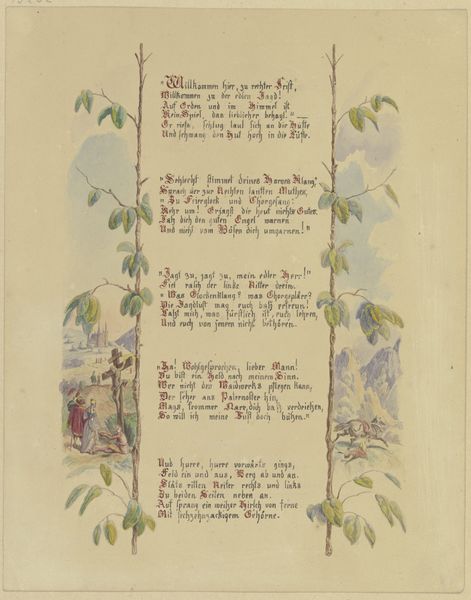 "Willkommen hier, zu rechter Frist,
Willkommen zu der edlen Jagd!
Auf Erden und im Himmel ist
Kein Spiel, das lieblicher behagt." —
Er riefs, schlug laut sich an die Hüfte
Und schwang den Hut hoch in die Lüfte.
"Schlecht stimmet deines Hornes Klang,"
Sprach der zur Rechten sanften Muthes,
"Zu Feierglock und Chorgesang.
Kehr um! Erjagst dir heut nichts Gutes.
Laß dich den guten Engel warnen
Und nicht vom Bösen dich umgarnen!"
"Jagt zu, jagt zu, mein edler Herr!"
Fiel rasch der linke Ritter drein.
"Was Glockenklang? was Chorgeplärr?
Die Jagdlust mag euch baß erfreun!
Laßt mich, was fürstlich ist, euch lehren,
Und euch von jenem nicht bethören.
"Ha! Wohlgesprochen, lieber Mann!
Du bist ein Held nach meinem Sinn.
Wer nicht des Waidwerks pflegen kann,
Der scher ans Paternoster hin,
Mags, frommer Narr, dich baß verdrießen,
So will ich meine Lust doch büßen."
Und hurre, hurre vorwärts gings,
Feld ein und aus, Berg ab und an.
Stäts ritten Reiter rechts und links
Zu beiden Seiten neben an.
Auf sprang ein weißer Hirsch von ferne
Mit sechzehnzackigem Gehörne.